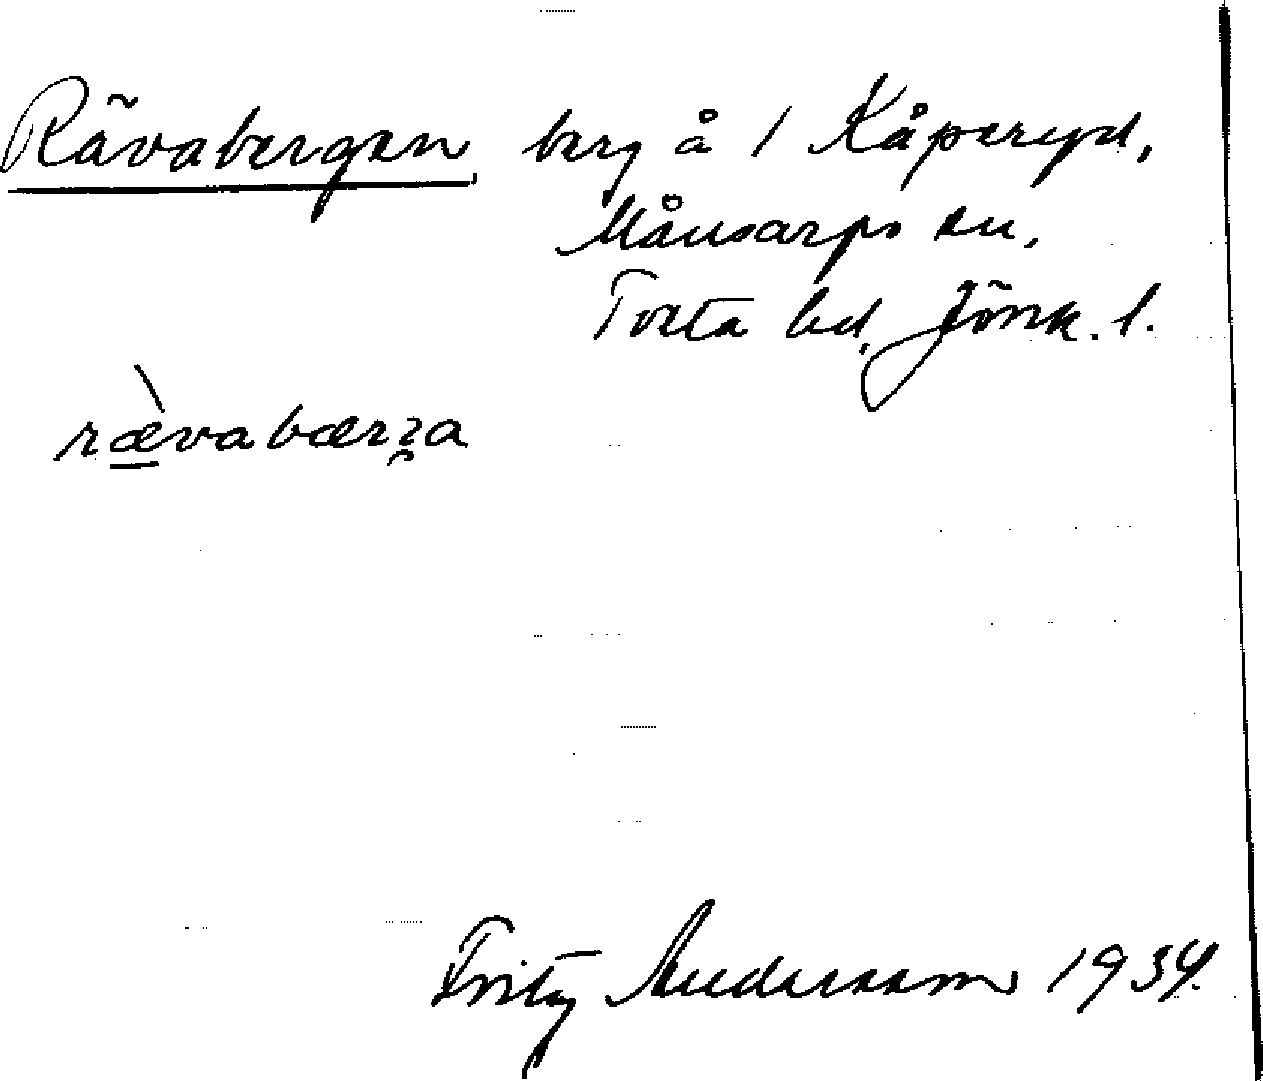 Rävabergen, berg å 1 Kåperyd,
Månsarps sn,
Tveta hd, Jönk. l.
rævabærʒa
Fritz Andersson 1934.